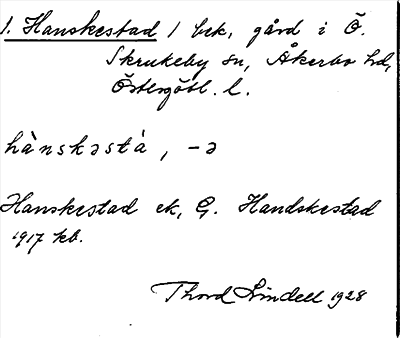 1. Hanskestad / bek, gård i Ö.
Skrukeby sn, Åkerbo hd,
Östergötl. l.
hànskəstà, -ə
Hanskestad ek, G. Handskestad
1917 kb.
Thord Lindell 1928